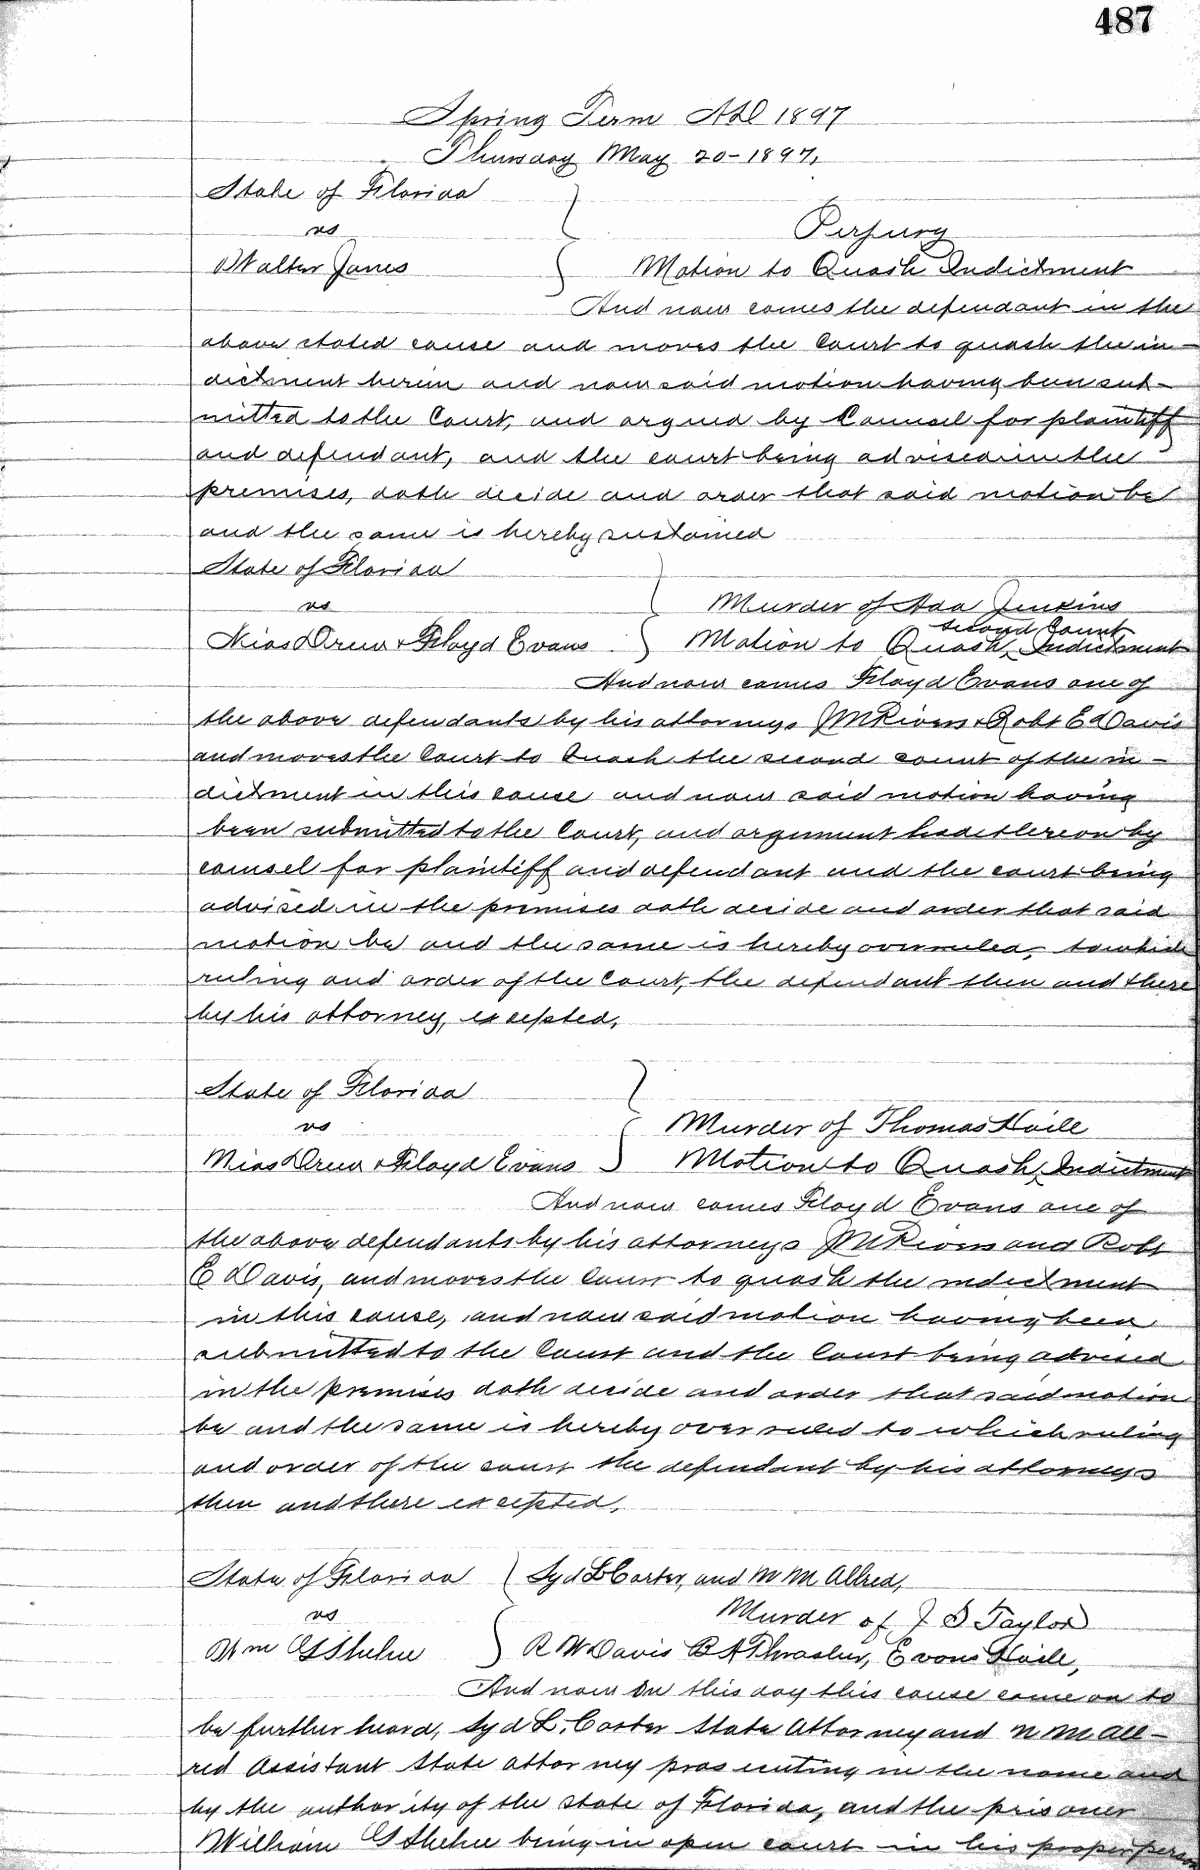 487
Spring Term AD 1897
Thursday May 20-1897,
State of Florida
vs
Perjury
Walter Jones
Motion to Quash Indictment
And now comes the defendant in the
above stated cause and moves the Court to quash the in-
dictment herein and now said motion having been sub-
mitted to the Court, and argued by Counsel for plaintiff
and defendant, and the court being advised in the
premises, doth decide and order that said motion be
and the same is hereby sustained
State of Florida
vs
Murder of Ada Jenkins
second Count
Drew & Floyd Evans Motion to Quash Indictment
And now comes Floyd Evans one of
the above defendants by his attorneys J M Rivers & Robt E Davis
and moves the Court to Quash the second count of the in-
dictment in this cause and now said motion having
been submitted to the Court, and argument had thereon by
counsel for plaintiff and defendant and the court being
advised in the premises doth decide and order that said
motion be and the same is hereby overruled, to which
ruling and order of the Court, the defendant then and there
by his attorney, excepted,
State of Florida
vs
Murder of Thomas Haile
Drew & Floyd Evans Motion to Quash Indictment
And now comes Floyd Evans one of
the above defendants by his attorneys J M Rivers and Robt
E Davis, and moves the Court to quash the indictment
in this cause, and now said motion having been
submitted to the Court and the Court being advised
in the premises doth decide and order that said motion
be and the same is hereby over ruled to which ruling
and order of the court the defendant by his attorneys
then and there excepted,
State of Florida Syd L Carter, and M M Allred,
vs
Murder of J S Taylor
Wm G Shehee R W Davis B A Thrasher, Evans Haile,
And now on this day this cause came on to
be further heard, Syd L. Carter State Attorney and M M All-
red Assistant State attorney prosecuting in the name and
by the authority of the state of Florida, and the prisoner
William G Shehee being in open court in his proper person